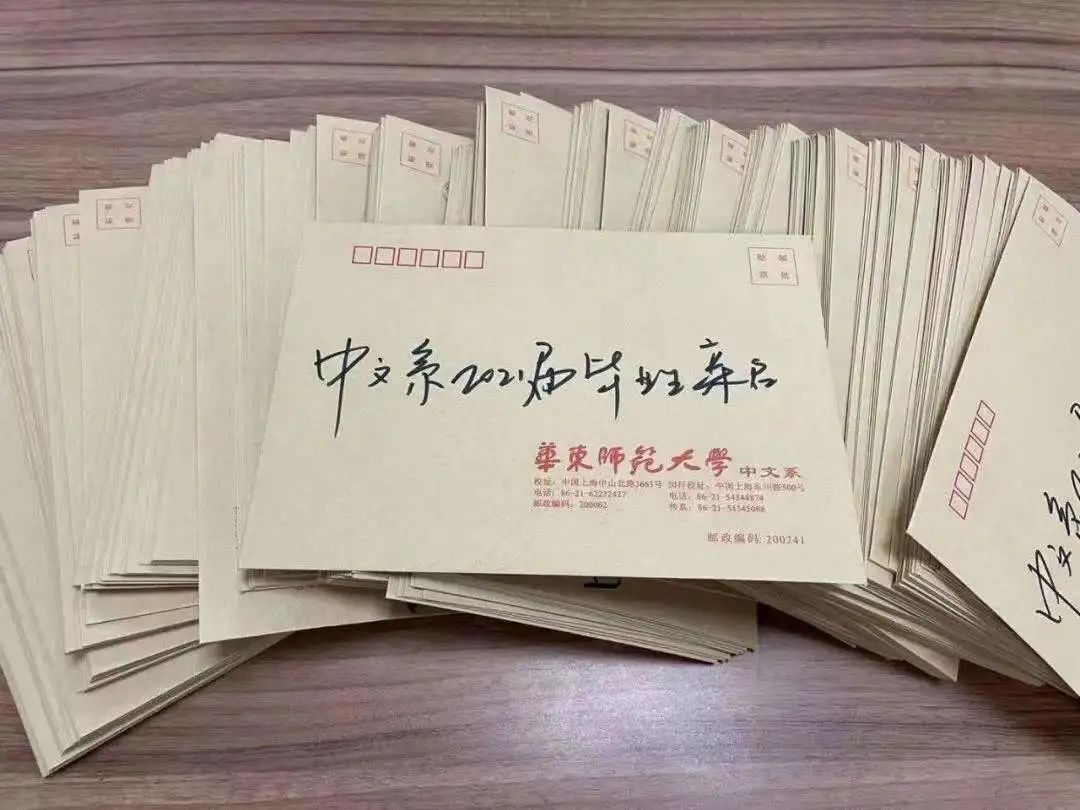 贴 邮
票 处
中文系2021届毕业生亲启
華東師範大學 中文系
校址：中国上海中山北路3663号 闵行校址：中国上海东川路500号
电话：86-21-62232427 电话：86-21-54344874
邮政编码：200062 传真：86-21-54345088
邮政编码：200241
中文系